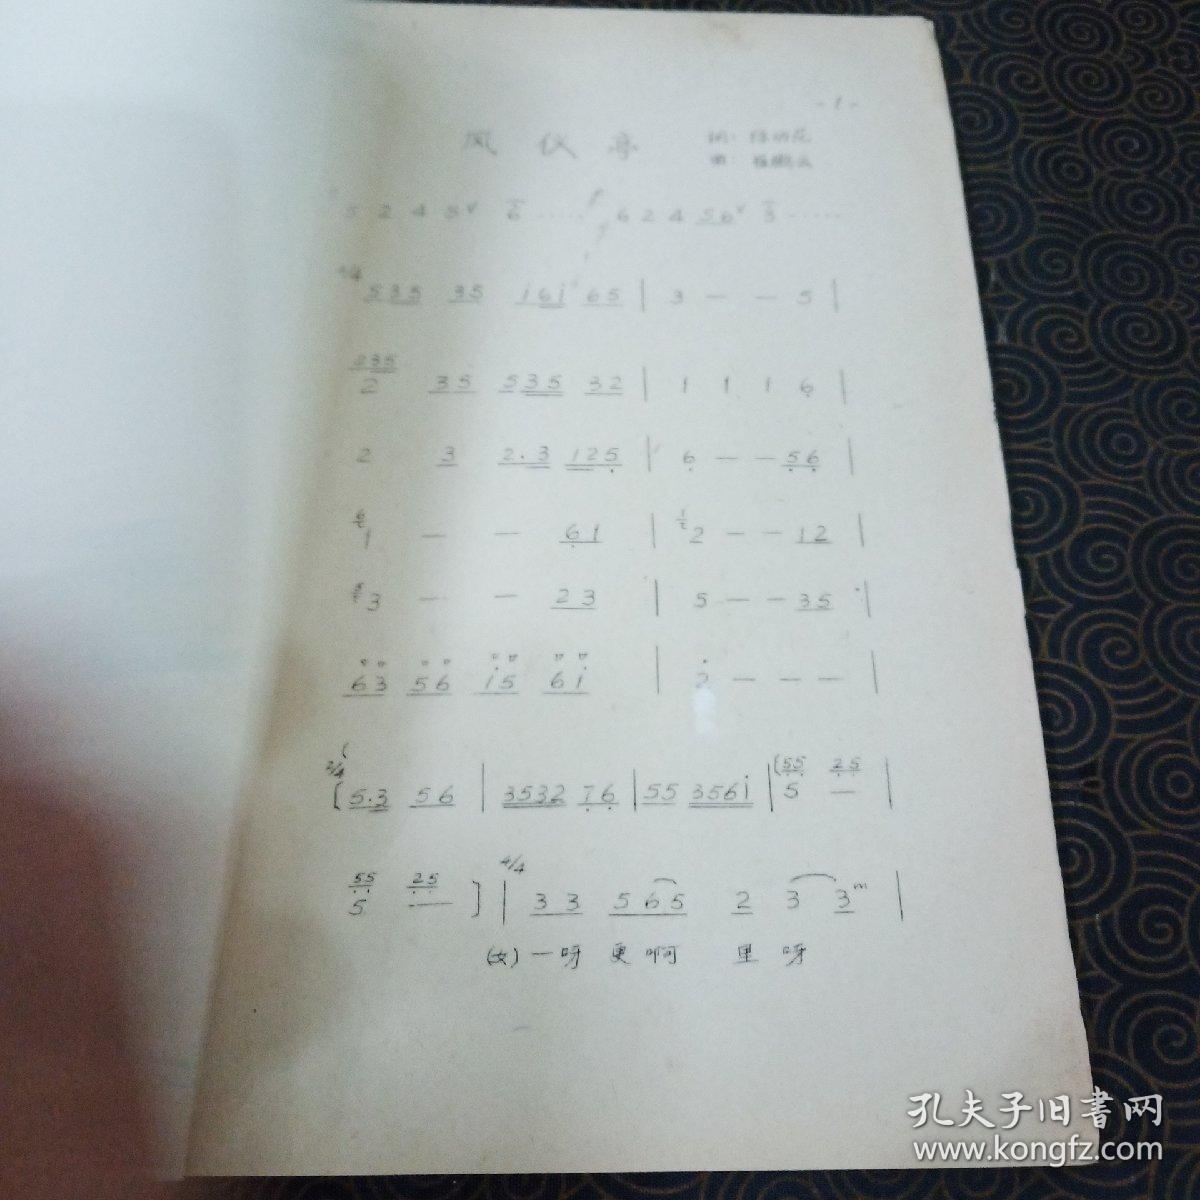 - 1 -
风 仪 亭
词:
曲:
5 2 4 5ˇ 6 ····· 6 2 4 56ˇ 3 ·····
4/4
535 35 i6i 65 | 3 — — 5 |
235
2 35 535 32 | 1 1 1 6 |
2 3 2.3 125 | 6 — — 56 |
6 1 — — 61 | 1 2 — — 12 |
3 — — 23 | 5 — — 35 |
63 56 i5 6i | 2 — — — |
2/4
[5.3 56 | 3532 76 | 55 3561 | 5 — |
(55 25
55 25
5 — ] | 4/4 33 565 2 3 3 |
(女) 一呀 更啊 里 呀
孔夫子旧書网
www.kongfz.com